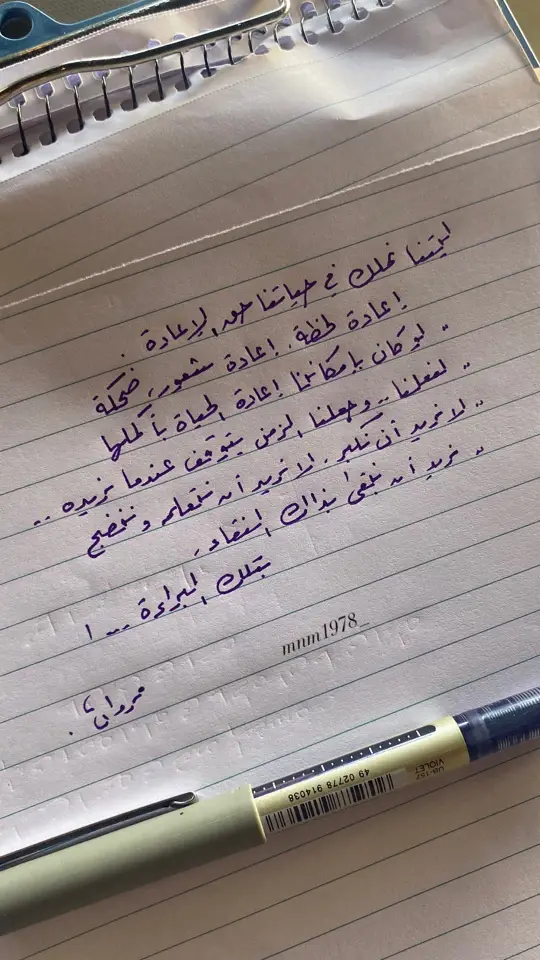 ليتنا نملك في حياتنا حق الإعادة .
إعادة لحظة، إعادة شعور، ضحكة
.. لو كان بإمكاننا إعادة الحياة بأكملها
.. لفعلنا .. وجعلنا الزمن يتوقف عندما نريده ..
.. لا نريد أن نكبر . لا نريد أن نتعلم و ننضج
.. نريد أن نبقى بذاك النقاء ,
بتلك البراءة ... !
mnm1978_
مروان
UB-157
VIOLET
49 02778 914038